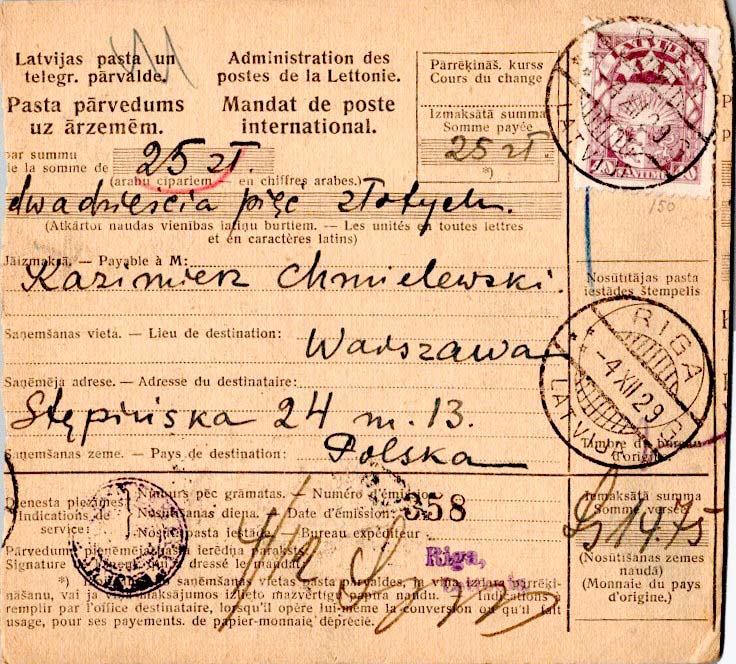 Latvijas pasta un
telegr. pārvalde.
Pasta pārvedums
uz ārzemēm.
Administration des
postes de la Lettonie.
Mandat de poste
international.
Pārrēķināš. kurss
Cours du change
Izmaksātā summa
Somme payée
25 zł.
*)
LATVIJA
par summu
de la somme de
25 zł.
(arabu cipariem — en chiffres arabes.)
dwadzieścia pięć złotych.
(Atkārtot naudas vienības latiņu burtiem. — Les unités en toutes lettres
et en caractères latins)
150
Jāizmaksā. — Payable à M:
Kazimierz Chmielewski.
Nosūtītājas pasta
iestādes štempelis
Saņemšanas vieta. — Lieu de destination:
Warszawa
RIGA
-4.XII.29
LATVIJA
Saņēmēja adrese. — Adresse du destinataire:
Stępińska 24 m. 13.
Timbre du bureau
d'origine.
Saņemšanas zeme. — Pays de destination:
Polska
Dienesta piezīmes
Indications de
service:
Numurs pēc grāmatas. — Numéro d'émission
358
Nosūtīšanas diena. — Date d'émission:
Nosūt. pasta iestāde. — Bureau expéditeur
Riga,
Izmaksātā summa
Somme versée
Ls 14.75
(Nosūtīšanas zemes
naudā)
(Monnaie du pays
d'origine.)
Pārvedumu pieņēmēja ierēdņa paraksts.
Signature dressé le mandat:
*) saņemšanas vietas pasta pārvaldes, ja viņa izdara pārrēķi-
nāšanu, vai ja maksājumos izlieto mazvērtīgu papīra naudu. — Indications à
remplir par l'office destinataire, lorsqu'il opère lui-même la conversion ou qu'il fait
usage, pour ses payements, de papier-monnaie déprécié.